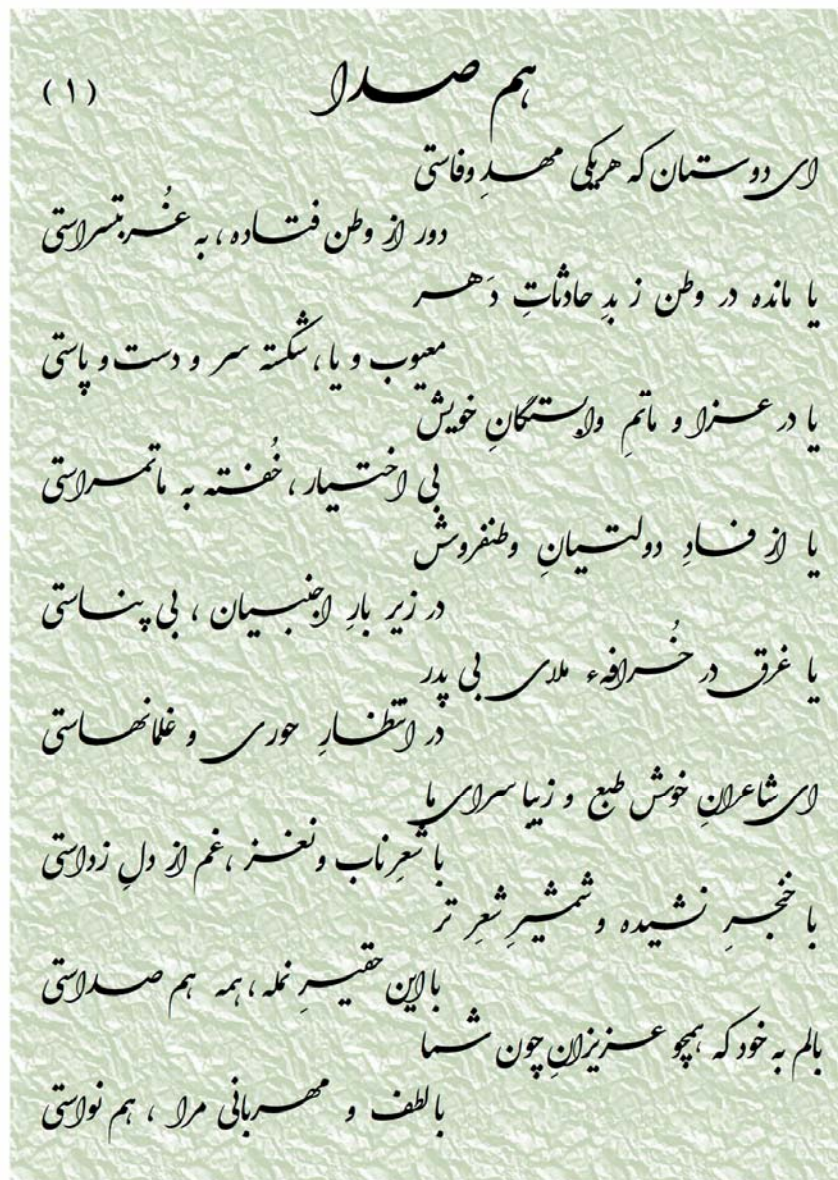 هم صدا
(۱)
ای دوستان که هریکی مهدِ وفاستی
دور از وطن فتاده، به غُربتسراستی
یا مانده در وطن ز بدِ حادثاتِ دَهر
معیوب و یا، شکسته سر و دست و پاستی
یا در عزا و ماتمِ وابستگانِ خویش
بی اختیار، خُفته به ماتمسراستی
یا از فسادِ دولتیانِ وطنفروش
در زیر بارِ اجنبیان، بی پناستی
یا غرق در خُرافهء ملای بی پدر
در انتظارِ حوری و غلمانهاستی
ای شاعرانِ خوش طبع و زیبا سرای ما
با شعرِ ناب و نغز، غم از دلِ زداستی
با خنجرِ نشیده و شمشیرِ شعرِ تر
با این حقیرِ نمله، همه هم صداستی
بالم به خود که همچو عزیزانِ چون شما
با لطف و مهربانی مرا، هم نواستی